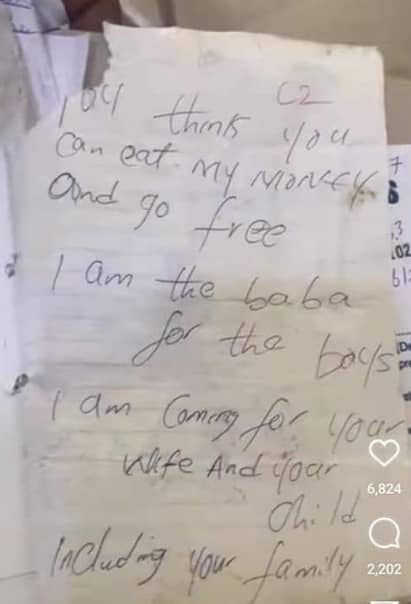 C2
You think you
Can eat my MONEY
And go free
I am the baba
for the boys
I am Coming for your
Wife And your
Child
Including your family
6,824
2,202